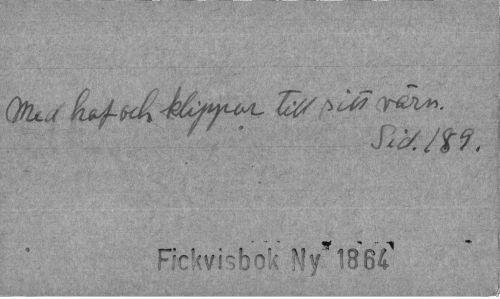 Med haf och klippor till sitt värn.
Sid. 189.
Fickvisbok Ny 1864